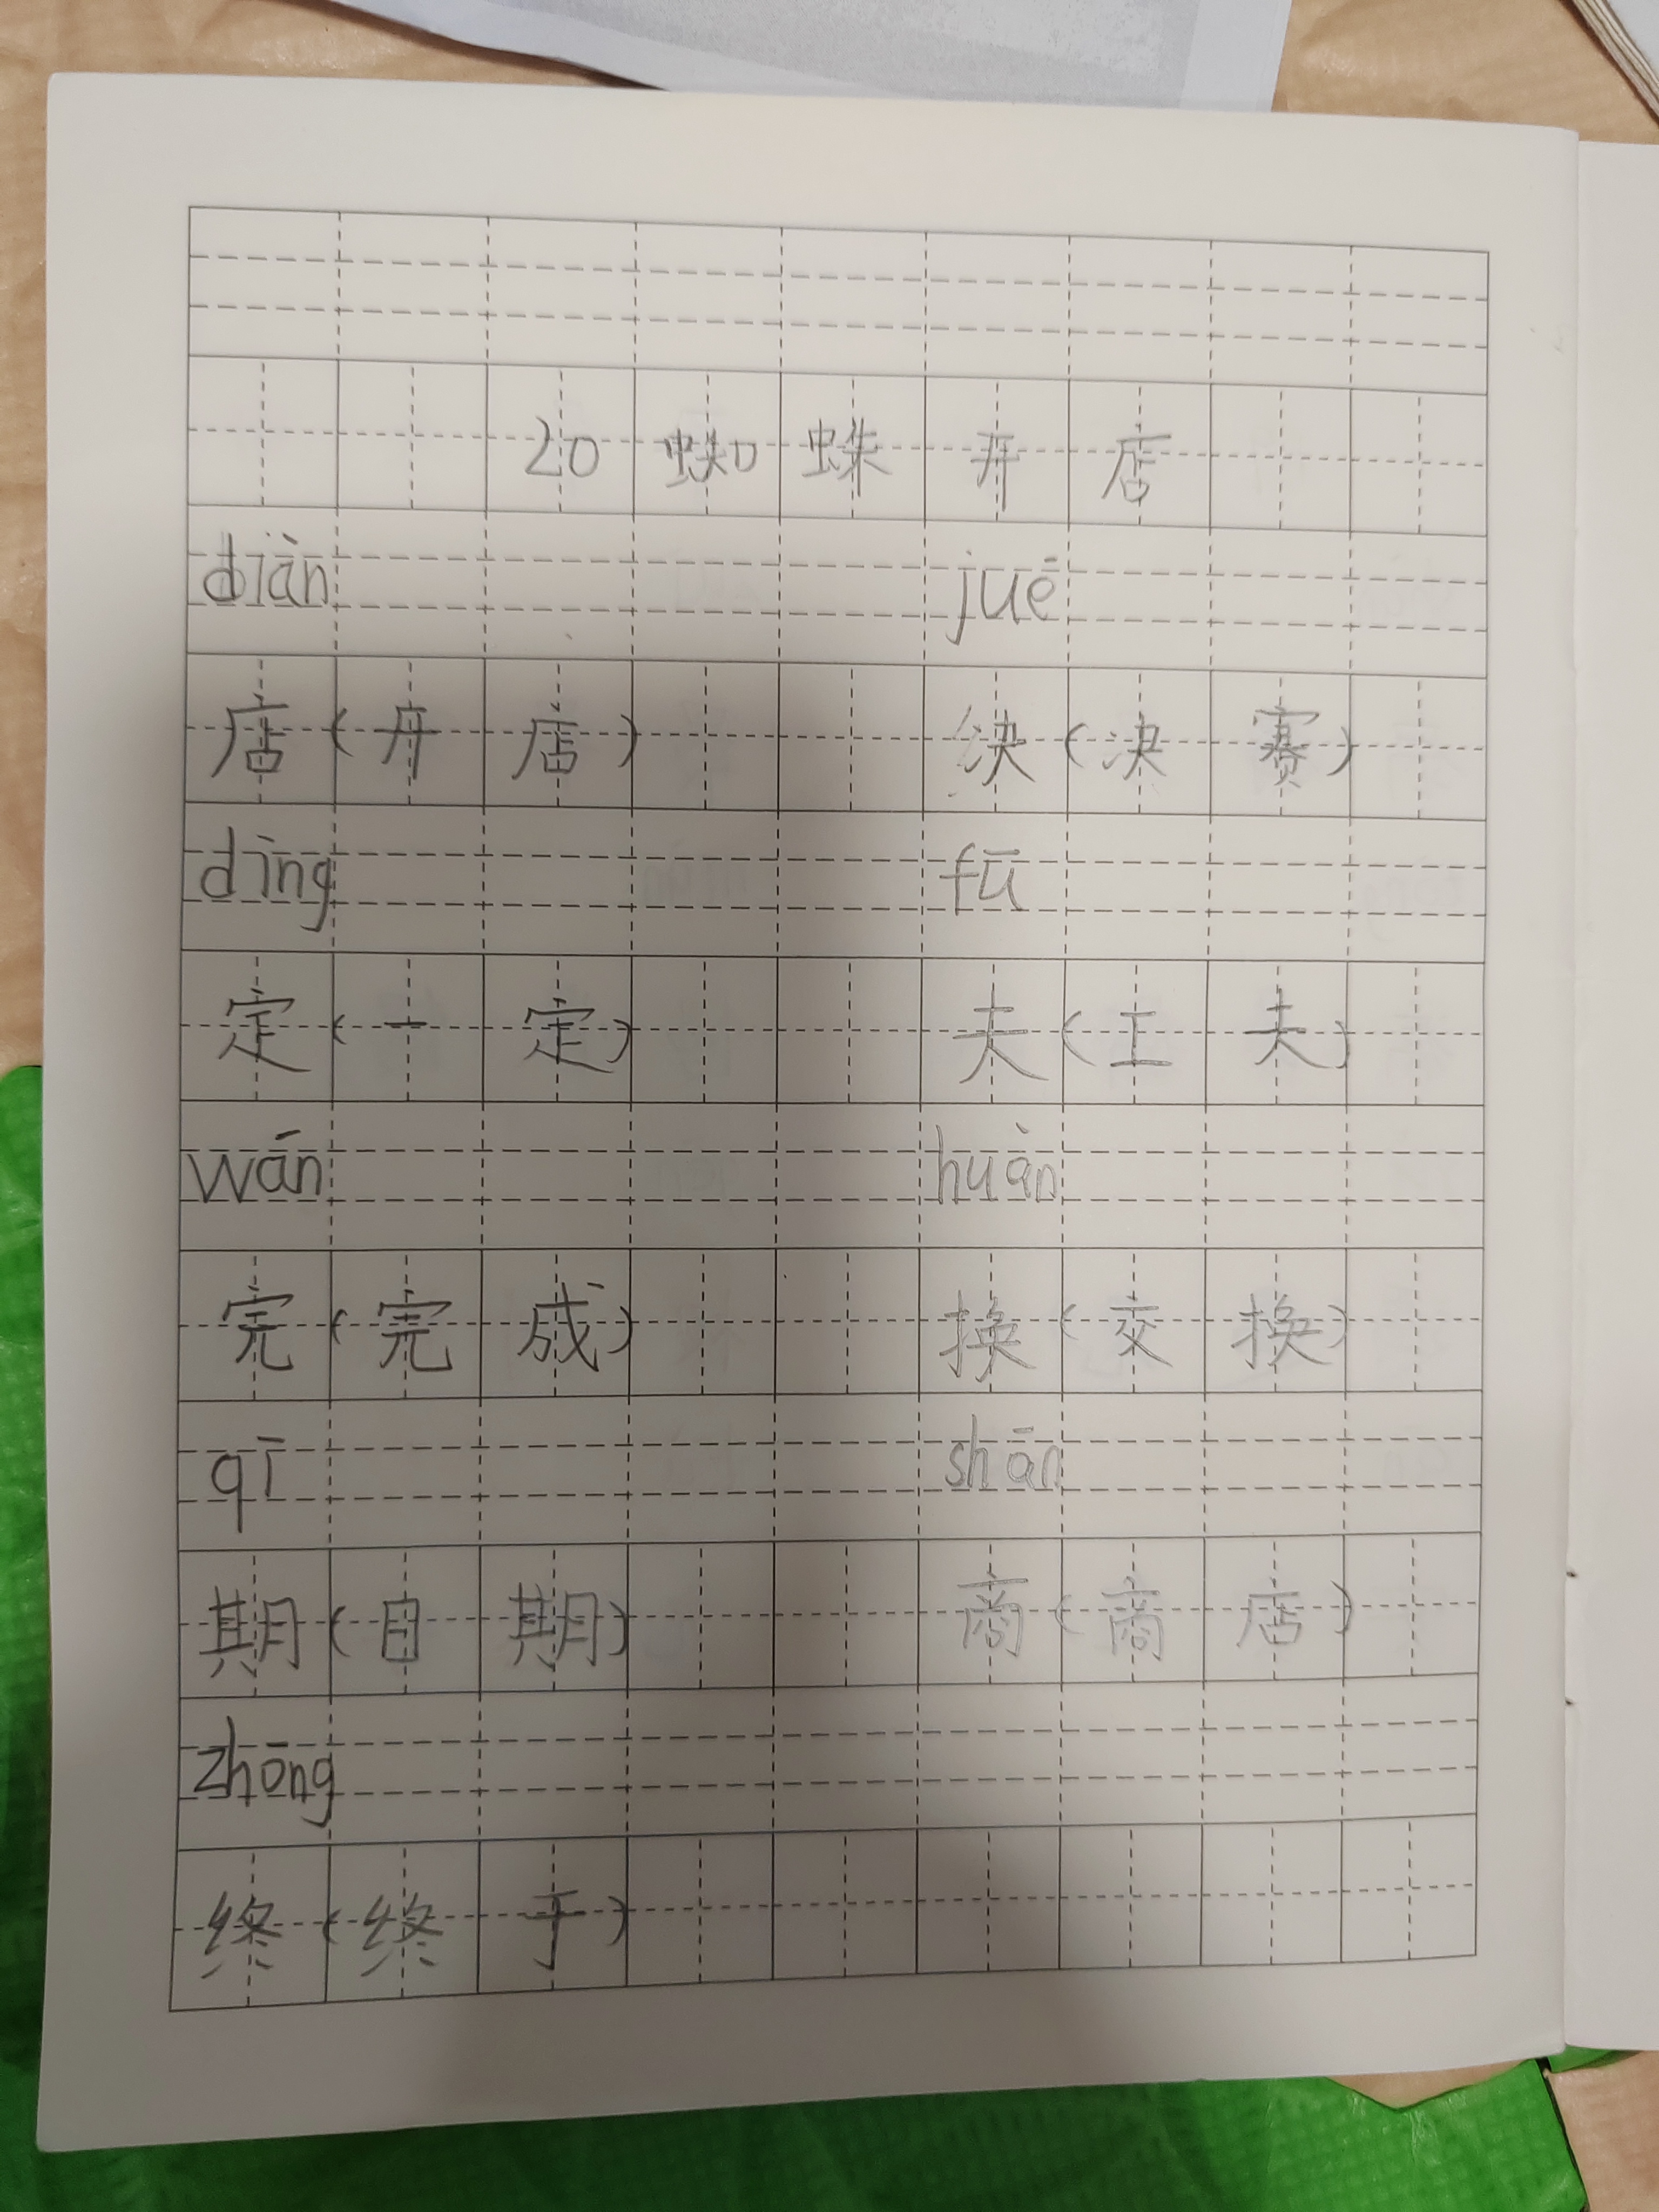 20 蜘蛛开店
diàn jué
店(开店) 决(决赛)
dìng fū
定(一定) 夫(工夫)
wán huàn
完(完成) 换(交换)
qī shān
期(自期) 商(商店)
zhōng
终(终于)